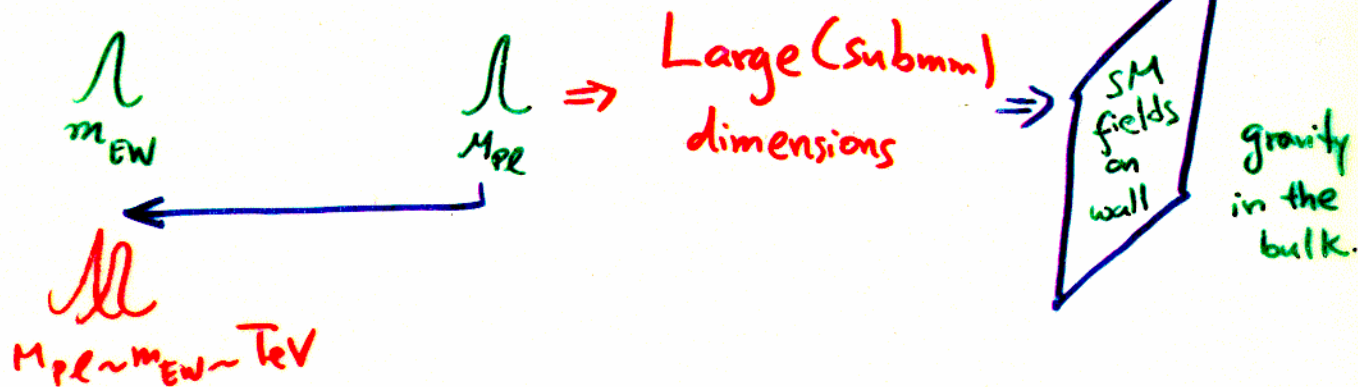 m_EW
M_Pl
⇒
Large (submm)
dimensions
⇒
SM
fields
on
wall
gravity
in the
bulk.
M_Pl ~ m_EW ~ TeV